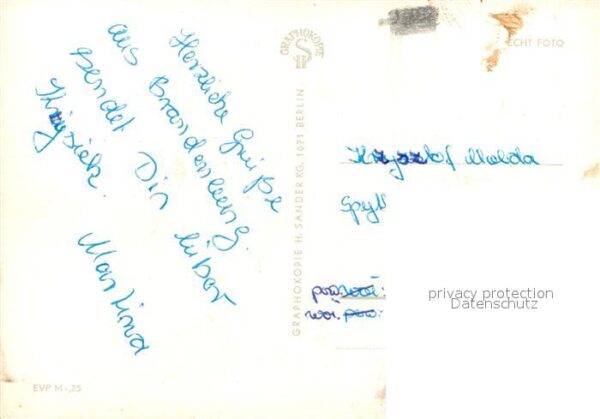 Herzliche Grüße
aus Brandenburg
sendet Dir lieber
Krzysiek.
Martina
GRAPHOKOPIE
GRAPHOKOPIE H. SANDER KG, 1071 BERLIN
ECHT FOTO
Krzysztof Molda
pow.
woj.
privacy protection
Datenschutz
EVP M -,25